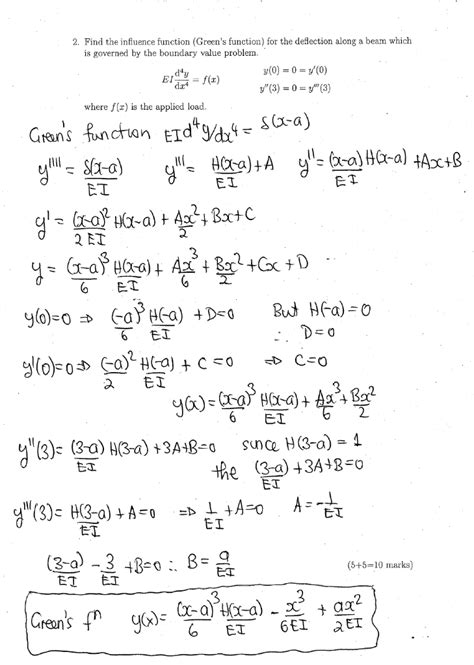 2. Find the influence function (Green's function) for the deflection along a beam which
is governed by the boundary value problem.
EI d⁴y/dx⁴ = f(x)    y(0) = 0 = y′(0)
y″(3) = 0 = y‴(3)
where f(x) is the applied load.
Green's function EI d⁴y/dx⁴ = δ(x-a)
y'''' = δ(x-a)/EI    y''' = H(x-a)/EI + A    y'' = (x-a)H(x-a)/EI + Ax+B
y' = (x-a)²/2EI H(x-a) + Ax²/2 + Bx + C
y = (x-a)³/6 H(x-a)/EI + Ax³/6 + Bx²/2 + Cx + D
y(0)=0 ⇒ (-a)³/6 H(-a)/EI + D=0    But H(-a) = 0
∴ D=0
y'(0)=0 ⇒ (-a)²/2 H(-a)/EI + C = 0    ⇒ C=0
y(x) = (x-a)³/6 H(x-a)/EI + Ax³/6 + Bx²/2
y''(3) = (3-a)/EI H(3-a) + 3A+B=0    since H(3-a) = 1
the (3-a)/EI + 3A+B=0
y'''(3) = H(3-a)/EI + A=0    ⇒ 1/EI + A=0    A = -1/EI
(3-a)/EI - 3/EI + B=0 ∴ B = a/EI
(5+5=10 marks)
Green's fⁿ    y(x) = (x-a)³/6 H(x-a)/EI - x³/6EI + ax²/2EI